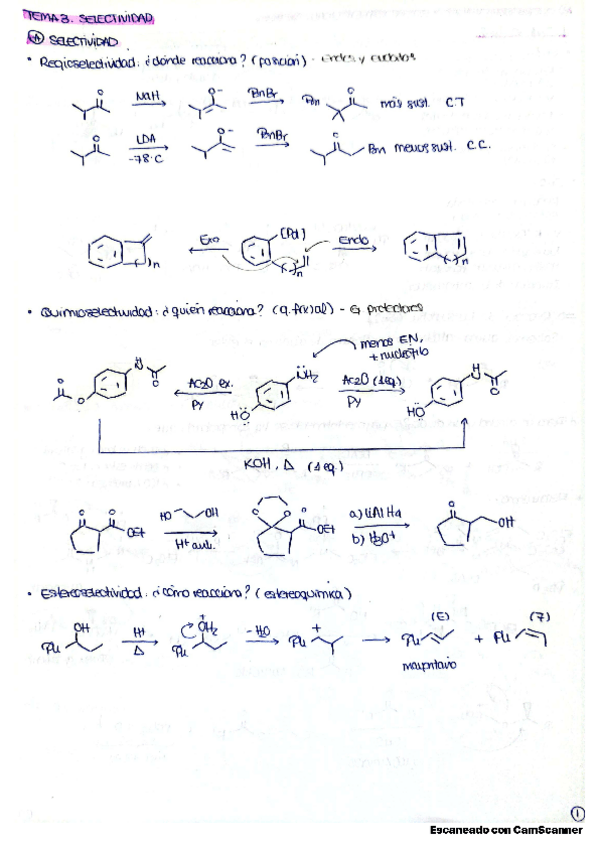 TEMA 3. SELECTIVIDAD
A SELECTIVIDAD
• Regioselectividad: ¿dónde reacciona? (posición) - 
NaH O⁻ BnBr Bn O más sust. C.T
O LDA -78°C O⁻ BnBr O Bn menos sust. C.C.
Exo (Pd) Endo
( )n ( )n ( )n
• Quimioselectividad: ¿quién reacciona? (g. funcional) - G protectores
menos EN, + nucleófilo
H N O Ac2O ex. Py NH2 HO Ac2O (1eq) Py H N O HO
KOH, Δ (1 eq.)
O O OEt HO OH H+ O O O OEt a) LiAlH4 b) H3O+ O OH
• Estereoselectividad: ¿cómo reacciona? (estereoquímica)
OH Ph H+ Δ OH2 Ph -H2O Ph + Ph (E) + Ph (Z)
mayoritario
1
Escaneado con CamScanner